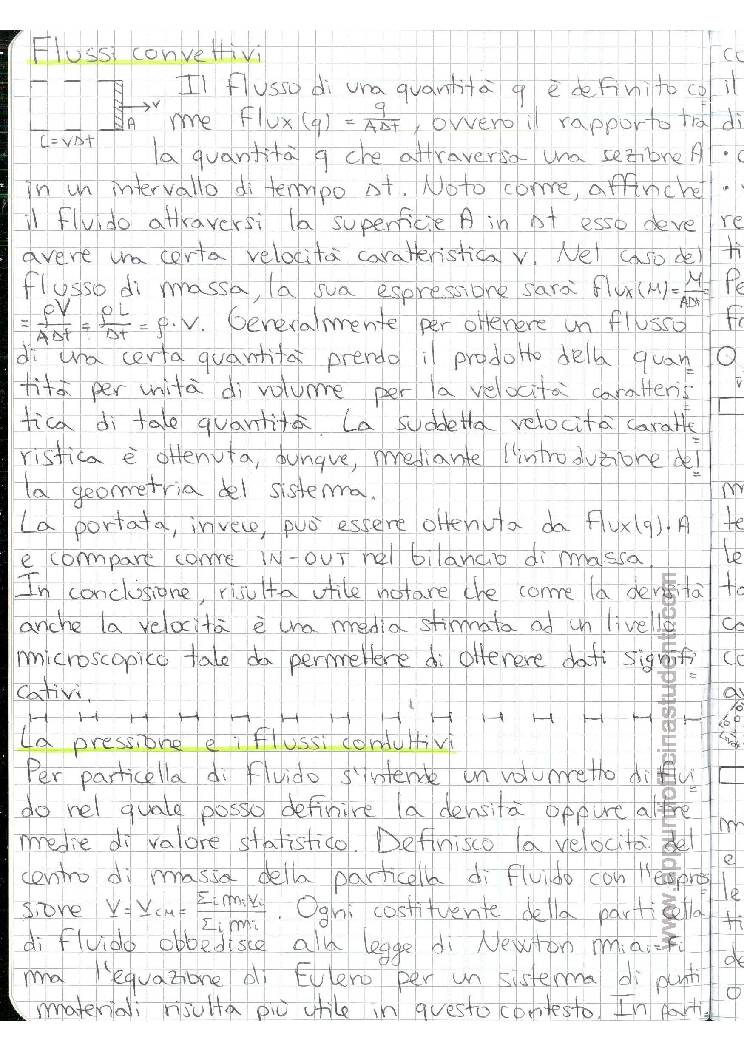 Flussi convettivi
Il flusso di una quantità q è definito co
me flux(q) = q/AΔt, ovvero il rapporto tra
L=vΔt
A
v
la quantità q che attraversa una sezione A
in un intervallo di tempo Δt. Noto come, affinche
il fluido attraversi la superficie A in Δt esso deve
avere una certa velocità caratteristica v. Nel caso del
flusso di massa, la sua espressione sarà flux(M)=M/AΔt
= ρV/AΔt = ρL/Δt = ρ·v. Generalmente per ottenere un flusso
di una certa quantità prendo il prodotto della quan
tità per unità di volume per la velocità caratteris
tica di tale quantità. La suddetta velocità caratte
ristica è ottenuta, dunque, mediante l'introduzione del
la geometria del sistema.
La portata, invece, può essere ottenuta da flux(q)·A
e compare come IN-OUT nel bilancio di massa.
In conclusione, risulta utile notare che come la densità
anche la velocità è una media stimata ad un livello
microscopico tale da permettere di ottenere dati signifi
cativi.
La pressione e i flussi conduttivi
Per particella di fluido s'intende un volumetto di flui
do nel quale posso definire la densità oppure altre
medie di valore statistico. Definisco la velocità del
centro di massa della particella di fluido con l'espres
sione v=vCM= Σi mi vi / Σi mi . Ogni costituente della particella
di fluido obbedisce alla legge di Newton miai=fi
ma l'equazione di Eulero per un sistema di punti
materiali risulta più utile in questo contesto. In parti
www.appuntiofficinastudenti.com